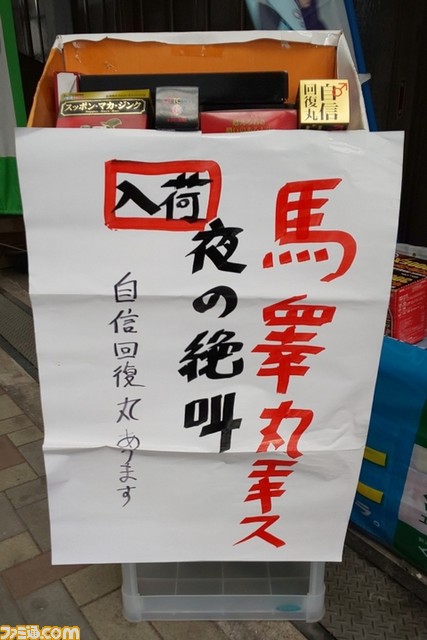 スッポン・マカ・ジンク
自信
回復丸
入荷
馬睾丸エキス
夜の絶叫
自信回復丸あります
ファミ通.com